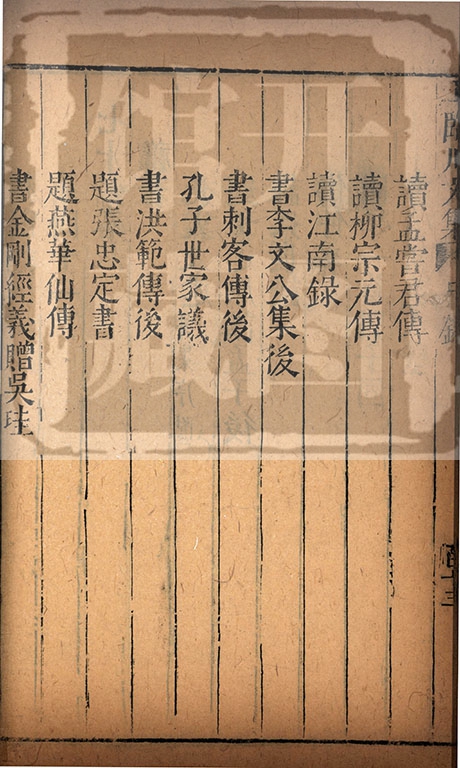 讀孟嘗君傳
讀柳宗元傳
讀江南錄
書李文公集後
書刺客傳後
孔子世家議
書洪範傳後
題張忠定書
題燕華仙傳
書金剛經義贈吳珪